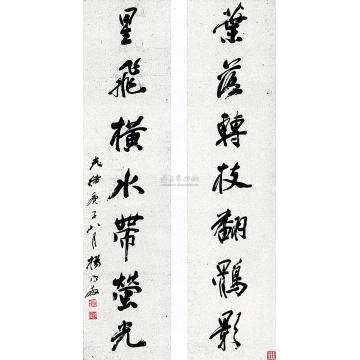 葉落轉枝翻鶻影
星飛橫水帶螢光
庚子八月楊